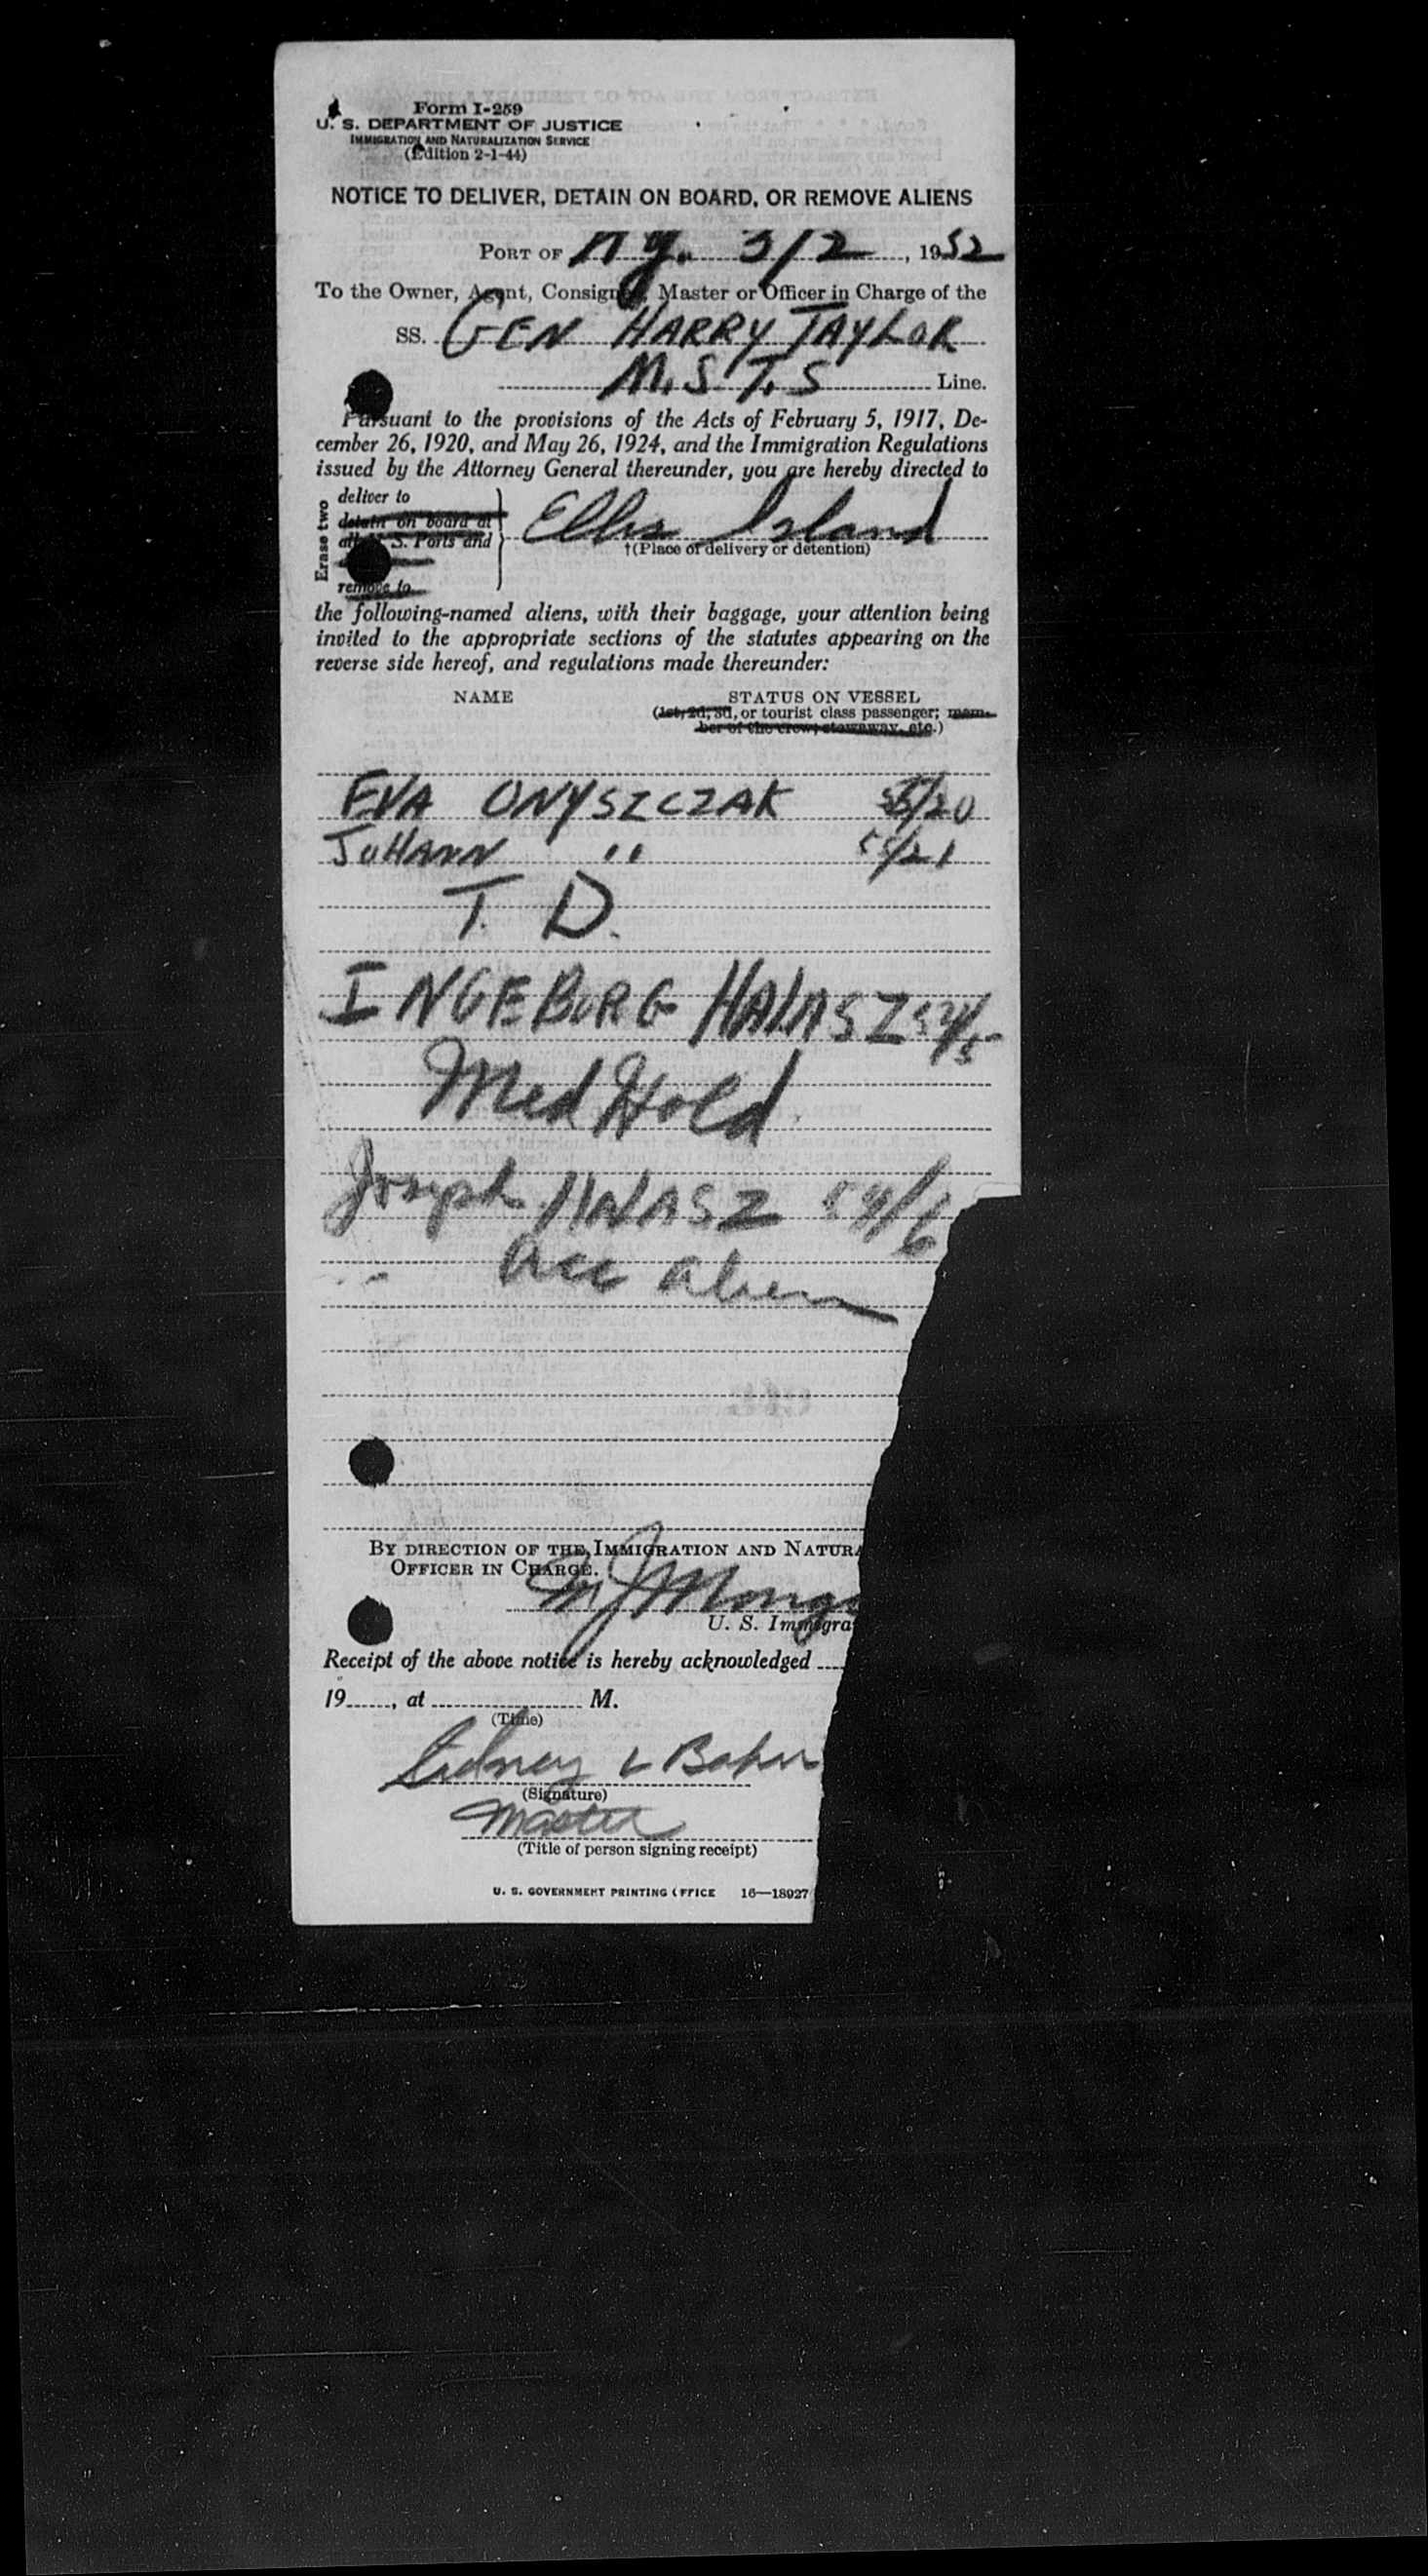 Form I-259
U. S. DEPARTMENT OF JUSTICE
IMMIGRATION AND NATURALIZATION SERVICE
(Edition 2-1-44)
NOTICE TO DELIVER, DETAIN ON BOARD, OR REMOVE ALIENS
PORT OF N.Y. 3/2, 1952
To the Owner, Agent, Consignee, Master or Officer in Charge of the
SS. GEN HARRY TAYLOR
M.S.T.S Line.
Pursuant to the provisions of the Acts of February 5, 1917, De-
cember 26, 1920, and May 26, 1924, and the Immigration Regulations
issued by the Attorney General thereunder, you are hereby directed to
Erase two
deliver to
detain on board at
all U. S. Ports and
remove to
Ellis Island
†(Place of delivery or detention)
the following-named aliens, with their baggage, your attention being
invited to the appropriate sections of the statutes appearing on the
reverse side hereof, and regulations made thereunder:
NAME STATUS ON VESSEL
(1st, 2d, 3d, or tourist class passenger; mem-
ber of the crew; stowaway, etc.)
EVA ONYSZCZAK 55/20
JOHANN " 55/21
T. D.
INGEBORG HALASZ 54/5
Med Hold
Joseph HALASZ 54/6
acc alien
BY DIRECTION OF THE IMMIGRATION AND NATURA
OFFICER IN CHARGE.
U. S. Immigra
Receipt of the above notice is hereby acknowledged
19......, at .................... M.
(Time)
Sidney L Baker
(Signature)
Master
(Title of person signing receipt)
U. S. GOVERNMENT PRINTING OFFICE 16—18927